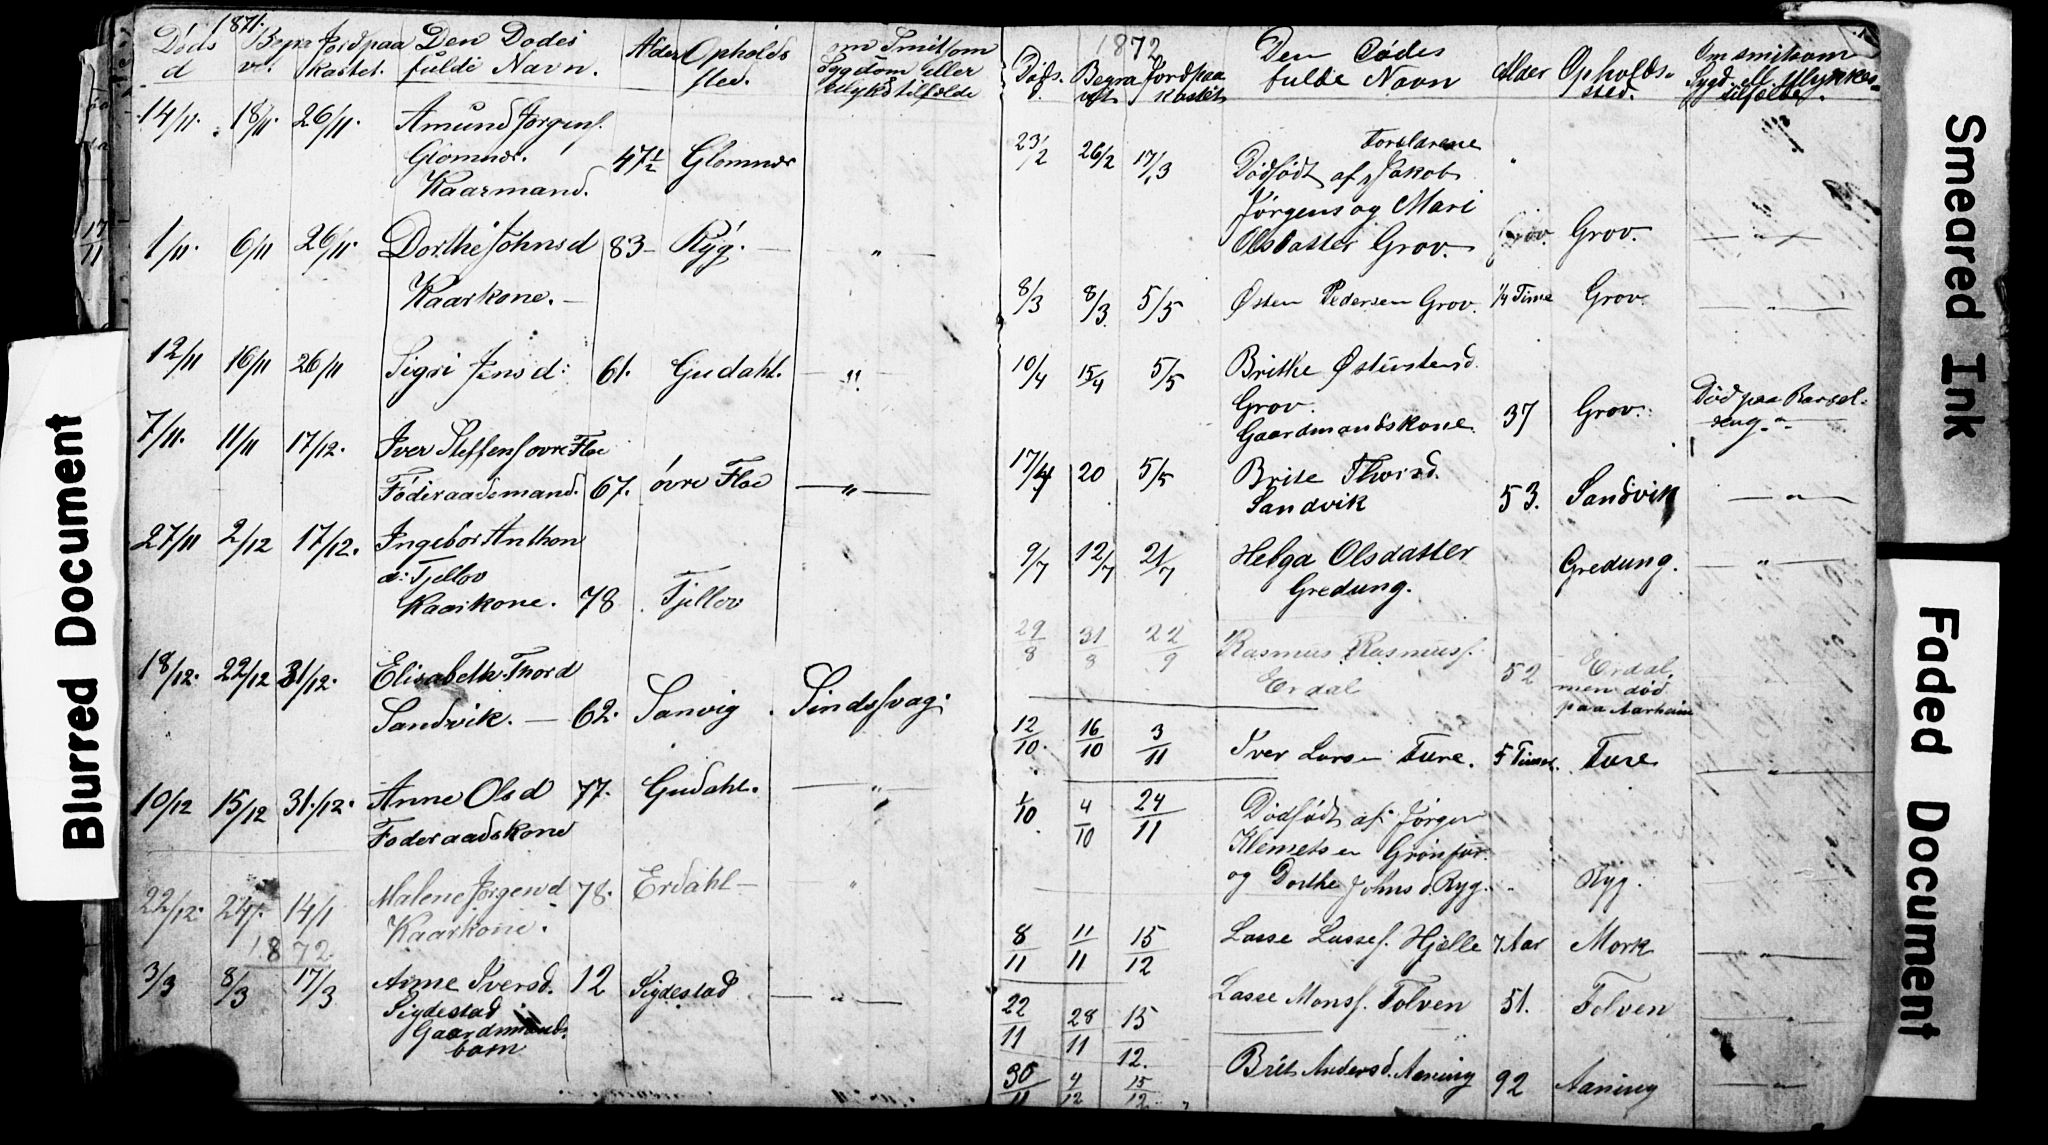 1871.
Døds Begra Jord paa Den Dødes Alder Opholds om Smitsom
d ve. kastet. fulde Navn. sted. Sygdom eller
Ulykkstilfælde
14/11. 18/11. 26/11. Amund Jørgens.
Glomnes. 47½ Glomnes
Kaarmand.
17/11
1/11. 6/11 26/11. Dorthe Johnsd 83 - Ryg. - " -
Kaarkone. -
12/11 16/11 26/11 Sigri Jensd: 61. Gudahl. - " -
7/11. 11/11 17/12. Iver Steffens. øvre Floe
Føderaademand. 67. øvre Floe - " -
27/11 2/12 17/12. Ingebor Anthon
d: Tjellov
Kaarkone. 78. Tjellov
18/12. 22/12 31/12. Elisabeth Thord
Sandvik. - 62. Sanvig. Sindssvag.
10/12 15/12 31/12. Anne Olsd 77. Gudahl. - " -
Føderaadskone
22/12. 27/. 14/1 Malene Jørgensd 78. Erdahl - "
Kaarkone.
1872
3/3 8/3 17/3 Anne Iversd. 12 Sigdestad - " -
Sigdestad
Gaardmands
barn
1872
Døds. Begra Jord paa Den Dødes Alder Opholds- Om smitsom
vet kastet fulde Navn sted. Sygd. ell. Ulykkes-
tilfælde.
Forældrene
23/2 26/2 17/3 Dødfødt af Jakob "
Jørgens og Mari
Olsdatter Grov. Grov. - " -
8/3 8/3 5/5 Østen Pedersen Grov. ¼ Time Grov. - " -
10/4 15/4 5/5 Brithe Østenstensd.
Grov. 37 Grov. Død paa Barsel-
Gaardmandskone. seng. "
17/4 20 5/5 Brite Thorsd.
Sandvik 53. Sandvik - " -
9/7 12/7 21/7 Helga Olsdatter Gredung. - " -
Gredung.
29/8 31/8 22/9 Rasmus Rasmuss. 52 Erdal,
Erdal men død
paa Aarheim
12/10. 16/10 3/11 Iver Larsen Ture. 5 Timer. Ture - " -
1/10 4/10 24/11 Dødfødt af Jørgen
Klemetsen Grønfur.
og Dorthe Johnsd. Ryg. " Ryg.
8/11 11/11 15/12 Lasse Lasses. Hjelle 7 Aar Mork - " -
22/11 28/11 15/12. Lasse Mons. Tolven 51. Tolven - " -
30/11 4/12 15/12 Brit Andersd. Aaning 92 Aaning - " -
Blurred Document
Smeared Ink
Faded Document